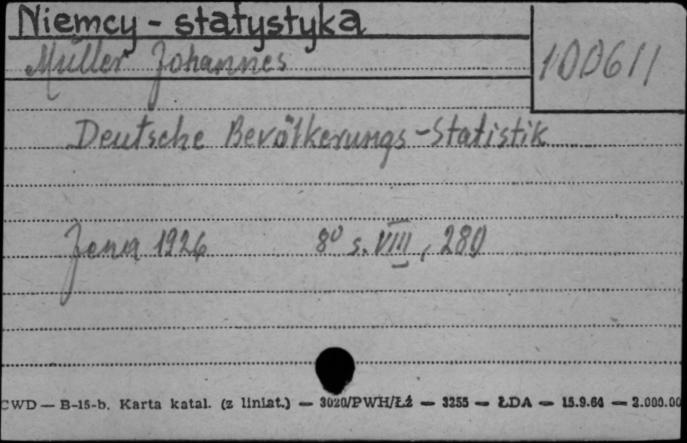 Niemcy - statystyka
Müller Johannes
100611
Deutsche Bevölkerungs-Statistik
Jena 1926 8º s. VIII, 280
CWD — B-15-b. Karta katal. (z liniat.) — 3020/PWH/Łź — 3255 — ŁDA — 15.9.64 — 2.000.00